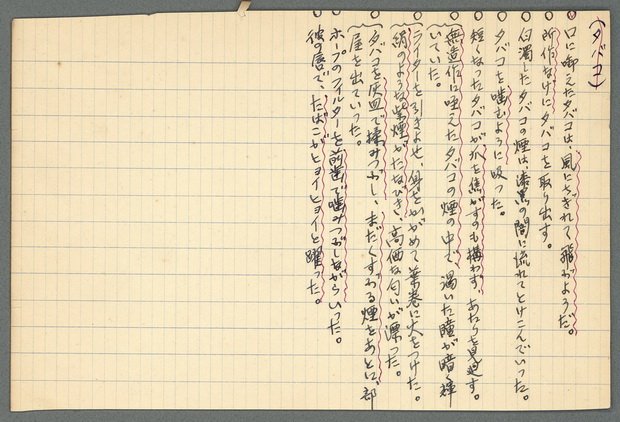 (タバコ)
○ 口に啣えたタバコは、風にちぎれて飛ぶようだ。
○ 所作なげにタバコを取り出す。
○ 白濁したタバコの煙は、漆黒の闇に流れてとけこんでいった。
○ タバコを噛むように吸った。
○ 短くなったタバコが爪を焦がすのも構わず、あたりを見廻す。
○ 無造作に咥えたタバコの煙の中で、渇いた瞳が暗く輝
いていた。
○ ライターを引きよせ、身をかがめて葉巻に火をつけた。
絹のような紫煙がたなびき、高価な匂いが漂った。
○ タバコを灰皿で揉みつぶし、まだくすぶる煙をあとに、部
屋を出ていった。
○ ホープのフィルターを前歯で噛みつぶしながらいった。
○ 彼の唇で、たばこがヒョイヒョイと躍った。